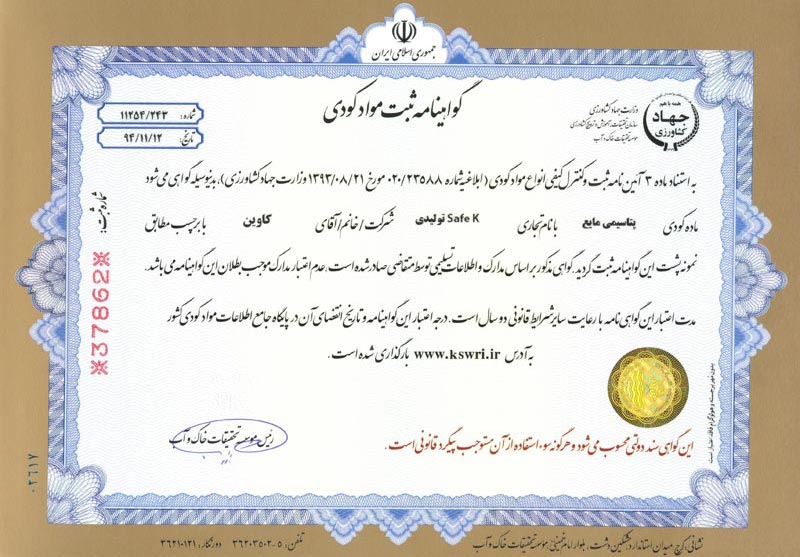 جمهوری اسلامی ایران
گواهینامه ثبت مواد کودی
شماره: ۱۱۲۵۴/۲۴۳
تاریخ: ۹۴/۱۱/۱۲
همه با هم
جهاد
کشاورزی
وزارت جهاد کشاورزی
سازمان تحقیقات، آموزش و ترویج کشاورزی
موسسه تحقیقات خاک و آب
به استناد ماده ۳ آئین نامه ثبت و کنترل کیفی انواع مواد کودی (ابلاغیه شماره ۰۲۰/۲۳۵۸۸ مورخ ۱۳۹۳/۰۸/۲۱ وزارت جهاد کشاورزی)، بدینوسیله گواهی می شود
ماده کودی پتاسیمی مایع با نام تجاری Safe K تولیدی شرکت / خانم / آقای کاوین با برچسب مطابق
نمونه پشت این گواهینامه ثبت گردید. گواهی مذکور بر اساس مدارک و اطلاعات تسلیمی توسط متقاضی صادر شده است. عدم اعتبار مدارک موجب بطلان این گواهینامه می باشد.
مدت اعتبار این گواهی نامه با رعایت سایر شرایط قانونی دو سال است. درجه اعتبار این گواهینامه و تاریخ انقضای آن در پایگاه جامع اطلاعات مواد کودی کشور
به آدرس www.kswri.ir بارگذاری شده است.
شماره ثبت:
※37862※
بدون مهر برجسته و هولوگرام فاقد اعتبار است
رئیس موسسه تحقیقات خاک و آب
این گواهی سند دولتی محسوب می شود و هرگونه سوء استفاده از آن مستوجب پیگرد قانونی است.
۰۲۶۱۷
نشانی: کرج، میدان استاندارد، مشکین دشت، بلوار امام خمینی، موسسه تحقیقات خاک و آب
تلفن: ۵-۳۶۲۰۳۵۰۲ دورنگار: ۳۶۲۱۰۱۲۱